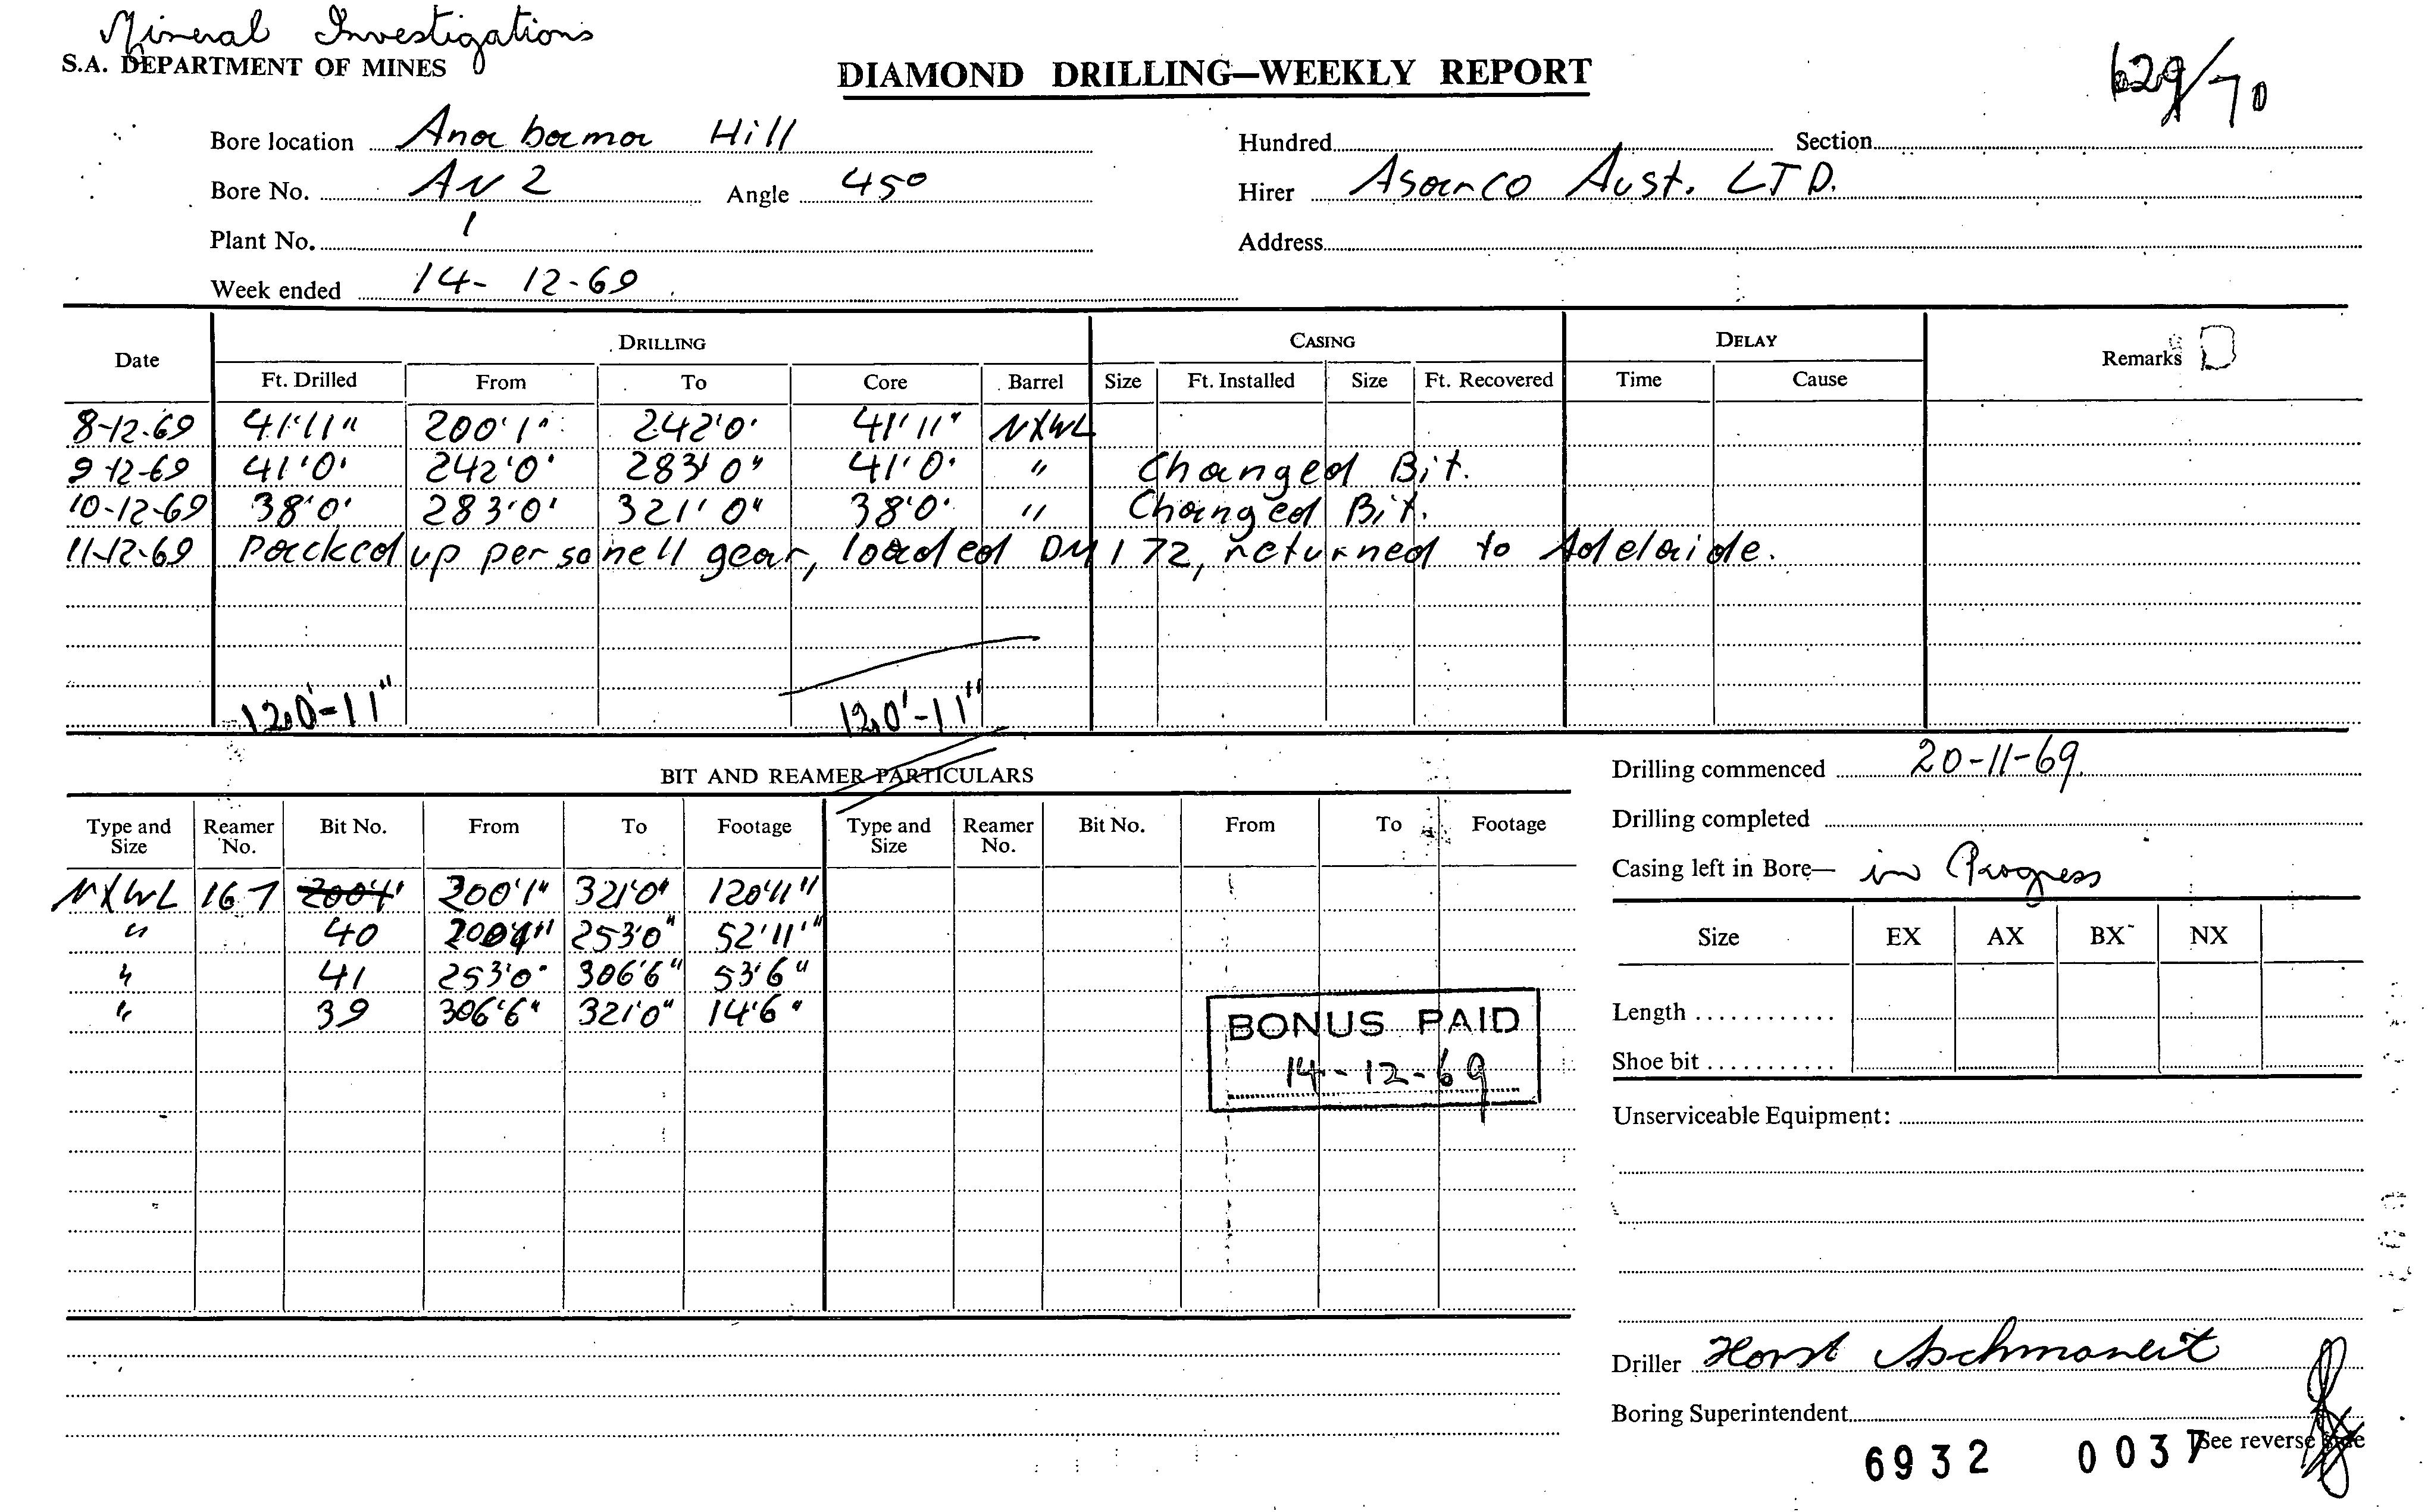 Mineral Investigations
S.A. DEPARTMENT OF MINES
DIAMOND DRILLING—WEEKLY REPORT
629/70
Bore location Anabama Hill
Hundred Section
Bore No. AN 2 Angle 45°
Hirer Asarco Aust. LTD.
Plant No. 1
Address
Week ended 14-12-69
Date DRILLING CASING DELAY Remarks
Ft. Drilled From To Core Barrel Size Ft. Installed Size Ft. Recovered Time Cause
8-12-69 41'11" 200'1" 242'0' 41'11" NXWL
9-12-69 41'0' 242'0' 283'0" 41'0' " Changed Bit.
10-12-69 38'0' 283'0' 321'0" 38'0' " Changed Bit.
11-12-69 Packed up personell gear, loaded DM 172, returned to Adelaide.
120'-11" 120'-11"
BIT AND REAMER PARTICULARS
Type and Size Reamer No. Bit No. From To Footage Type and Size Reamer No. Bit No. From To Footage
NXWL 167 200'1" 321'0" 120'11"
" 40 200'1" 253'0" 52'11"
" 41 253'0" 306'6" 53'6"
" 39 306'6" 321'0" 14'6"
BONUS PAID
14-12-69
Drilling commenced 20-11-69
Drilling completed
Casing left in Bore— in Progress
Size EX AX BX NX
Length
Shoe bit
Unserviceable Equipment:
Driller Horst Aschmoneit
Boring Superintendent
See reverse
6932 0037